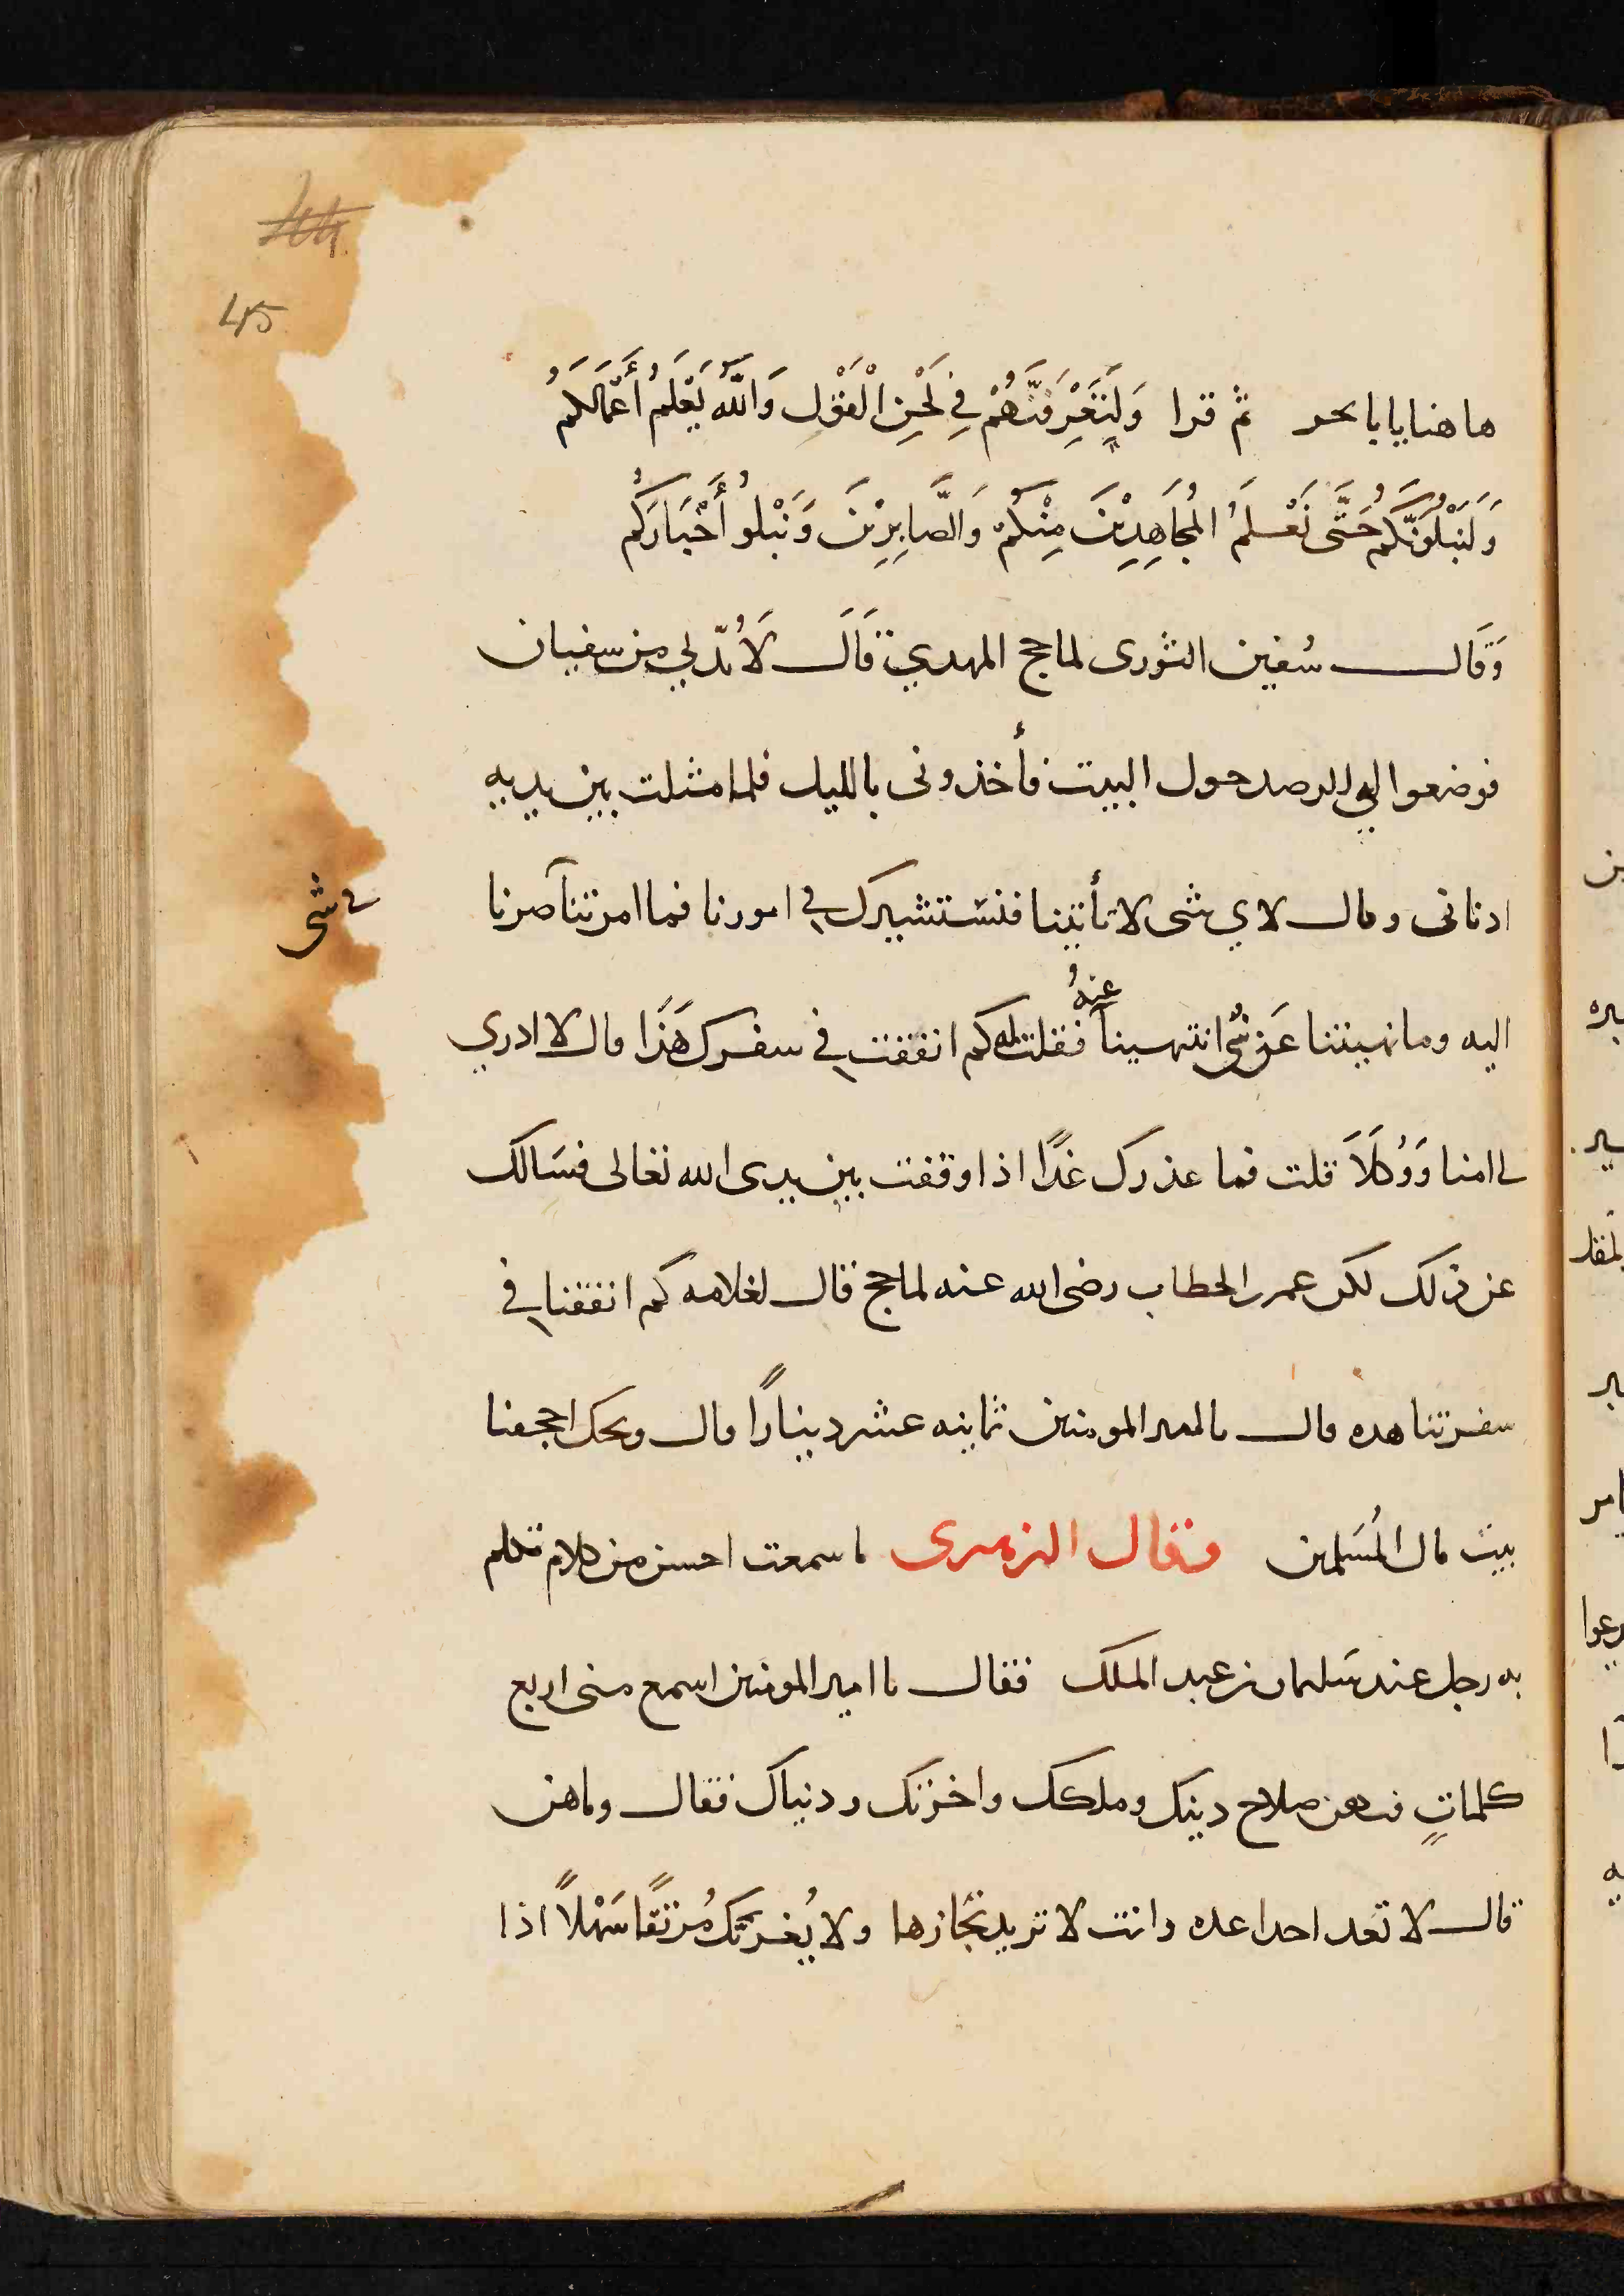 45
هاهنا يابا بحر ثم قرا وَلَتَعْرِفَنَّهُمْ فِي لَحْنِ الْقَوْلِ وَاللَّهُ يَعْلَمُ أَعْمَالَكُمْ
وَلَنَبْلُوَنَّكُمْ حَتَّى نَعْلَمَ الْمُجَاهِدِيْنَ مِنْكُمْ وَالصَّابِرِيْنَ وَنَبْلُوَ أَخْبَارَكُمْ
وَقَال سُفين الثورى لما حج المهدي قَالَ لَا بُدّ لي من سفيان
فوضعوا لي الرصد حول البيت فأخذونى بالليل فلما مثلت بين يديه
ادنانى وقال لاي شى لا تأتينا فنستشيرك في امورنا فما امرتنا صرنا
في شى
اليه وما نهيتنا عَن شى انتهينا عنهُ فقلت له كم انفقت في سفرك هَذَا قال لا ادري
لي امنا وَوُكَلَا قلت فما عذرك غدًا اذا وقفت بين يدى الله تعالى فسَالك
عن ذلك لكن عمر بن الخطاب رضى الله عنه لما حج قال لغلامه كم انفقنا في
سفرتنا هده قال يا امير المومنين ثمانيه عشر دينارًا قال ويحك اجحفنا
بيت مال المُسَلمين وقال الزهرى ما سمعت احسن من كلام تكلم
به رجل عند سَليمان بن عبد الملك فقال يا امير المومنين اسمع منى اربع
كلماتٍ فيهن صلاح دينك وملكك واخرتك ودنياك فقال وماهن
قال لا تَعد احدا عده وانت لا تريد نجازها ولا يُغرنّك مُرتقًا سَهْلًا اذا